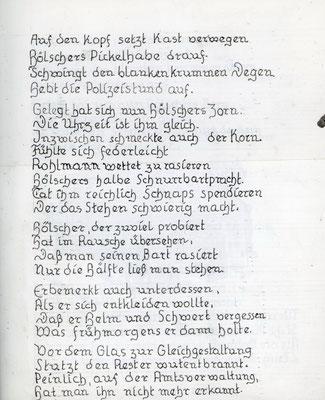 Auf den Kopf setzt Kast verwegen
Hölschers Pickelhabe drauf.
Schwingt den blanken krummen Degen
Hebt die Polizeistund auf.
Gelegt hat sich nun Hölschers Zorn.
Die Uhrzeit ist ihm gleich.
Inzwischen schmeckte auch der Korn.
Fühlte sich federleicht
Rohlmann wettet zu rasieren
Hölschers halbe Schnurrbartpracht.
Tat ihm reichlich Schnaps spendieren
Der das Stehen schwierig macht.
Hölscher, der zuviel probiert
Hat im Rausche übersehen,
Daß man seinen Bart rasiert
Nur die Hälfte ließ man stehen
Er bemerkt auch unterdessen,
Als er sich entkleiden wollte,
Daß er Helm und Schwert vergessen
Was frühmorgens er dann holte.
Vor dem Glas zur Gleichgestaltung
Stutzt den Rester wutentbrannt.
Peinlich, auf der Amtsverwaltung,
hat man ihn nicht mehr erkannt.